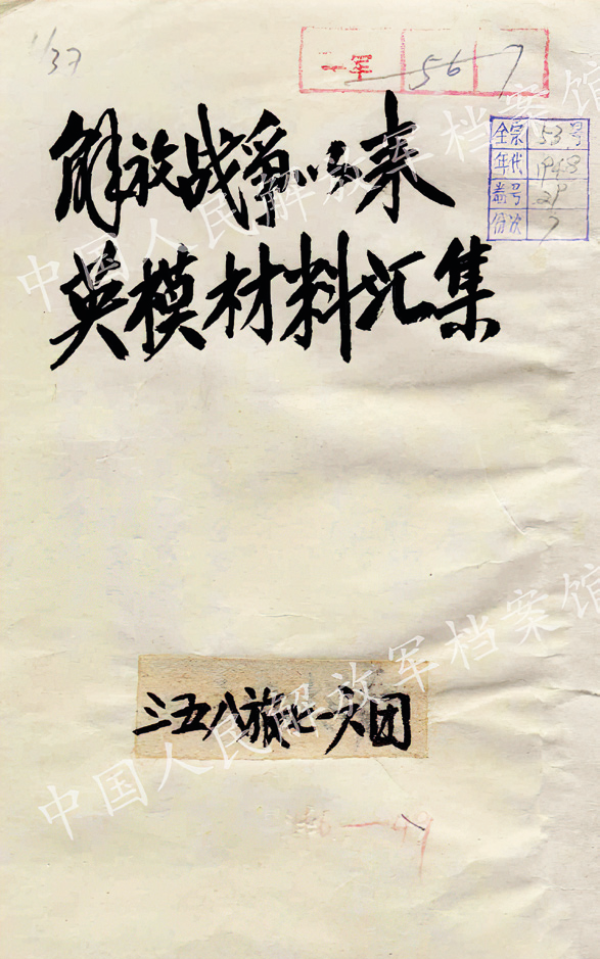 1/37
一军 56 7
全宗 53号
年代 1948
卷号 29
份次 7
解放战争以来
英模材料汇集
中国人民解放军档案馆
三五八旅七一六团
中国人民解放军档案馆